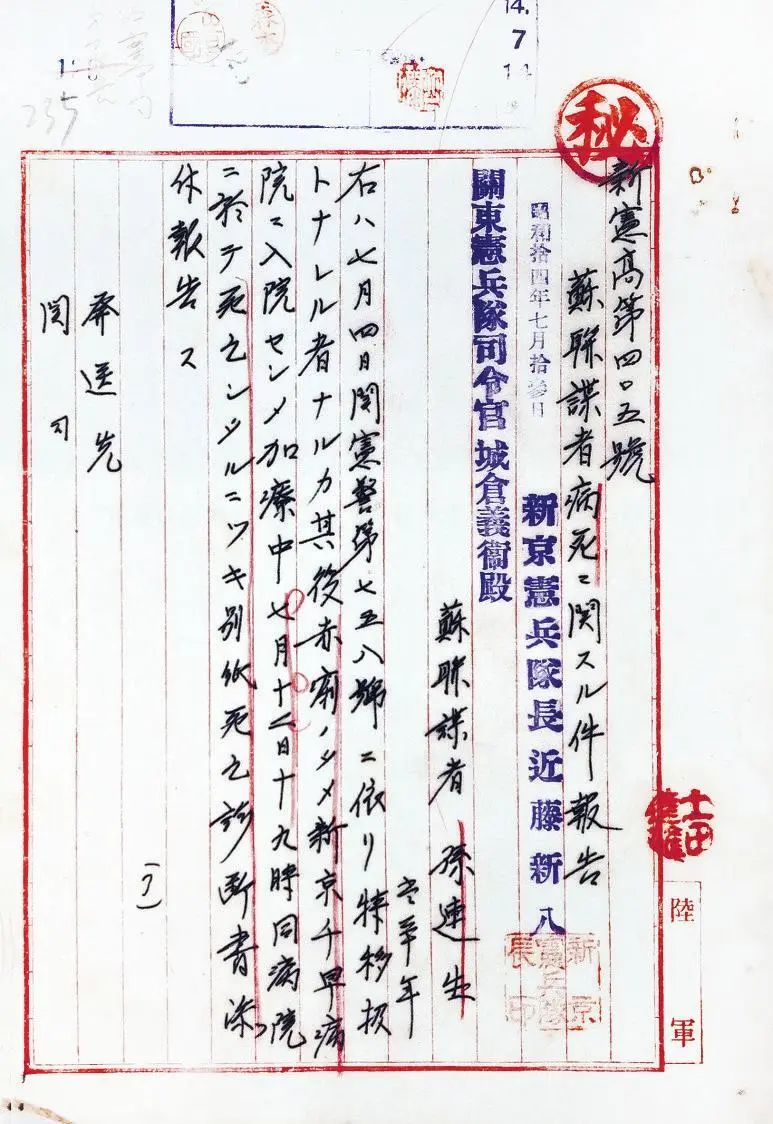 14.
7
14
235
秘
新憲高第四〇五號
蘇聯諜者病死ニ関スル件報告
昭和拾四年七月拾參日
新京憲兵隊長近藤新八
新京憲兵隊長印
關東憲兵隊司令官城倉義衛殿
蘇聯諜者 孫連生
年
右ハ七月四日関憲警第七五八號ニ依リ特移扱
トナレル者ナルカ其後赤痢ノタメ新京千早病
院ニ入院セシメ加療中七月十二日十九時同病院
ニ於テ死亡シタルニツキ別紙死亡診断書添
付報告ス
発送先
関司
(了)
陸軍